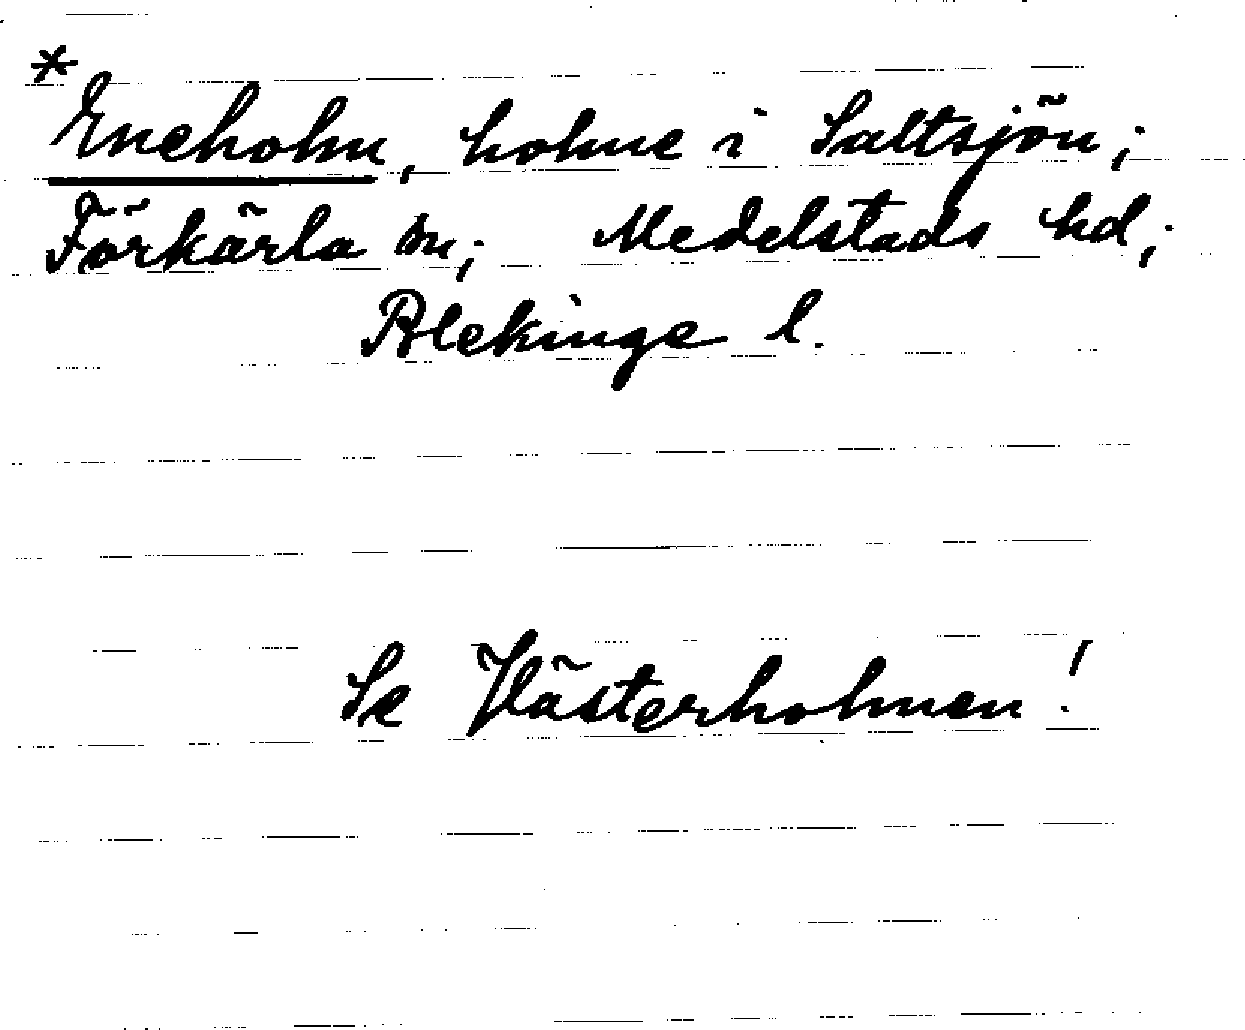 *
Eneholm, holme i Saltsjön;
Förkärla sn; Medelstads hd;
Blekinge l.
Se Västerholmen!